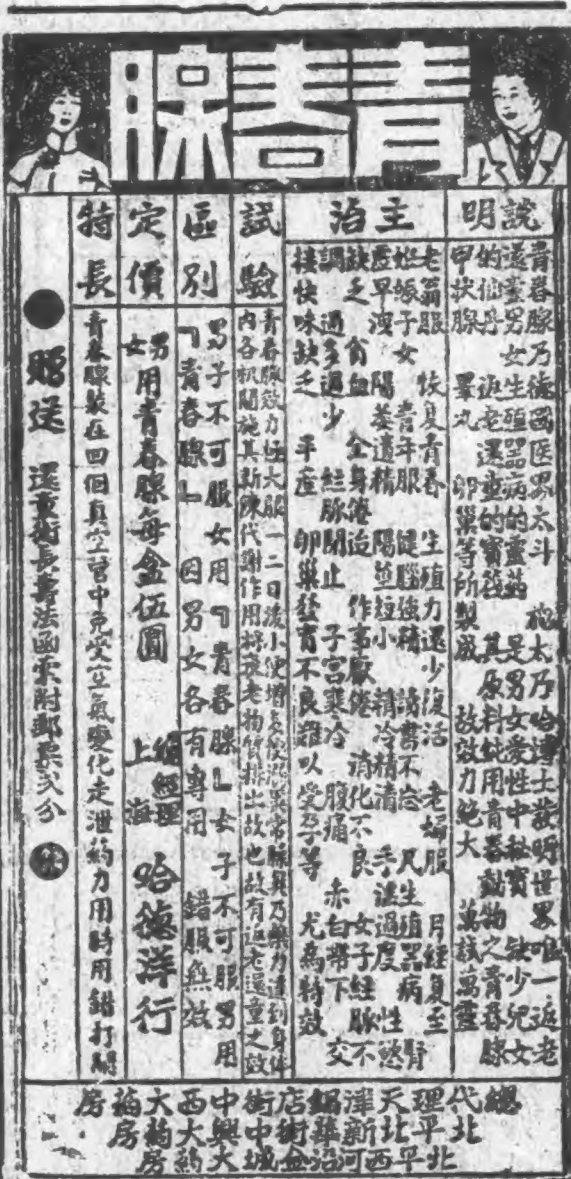 青春腺
說明
青春腺乃德國医界太斗 施太乃哈博士發明世界唯一返老
還童男女生殖器病的靈药 是男女愛性中秘寶 缺少兒女
的仙丹 返老還童的寶筏 其原料純用青春動物之青春腺
甲状腺 睪丸 卵巢等所製成 故效力絕大 萬試萬靈
主治
老翁服 恢复青春 生殖力還少復活 老婦服 月經复至
子女 青年服 健腦強精 讀書不忘 凡生殖器病 腎
虛早洩 陽萎遺精 陽莖短小 精冷精清 手淫過度 性慾
缺乏 貧血 全身倦怠 作事厭倦 消化不良 女子經脉不
調 過多過少 經脉閉止 子宮寒冷 腹痛 赤白帶下 交
接快味缺乏 半產 卵巢發育不良難以受孕等 尤為特效
試驗
青春腺效力極大服一二日後小便增多
內各机關施其新陳代謝作用將衰老物質排出故也故有返老還童之效
區別
男子不可服女用『青春腺』女子不可服男用
『青春腺』因男女各有專用 錯服無效
定價
男女用青春腺每盒伍圓
總經理
上海
哈德洋行
特長
青春腺裝在四個真空管中免受空氣變化走泄药力用時用錯打開
贈送 還童術長壽法函索附郵票弍分
總代理
北平
天津
中西大药房